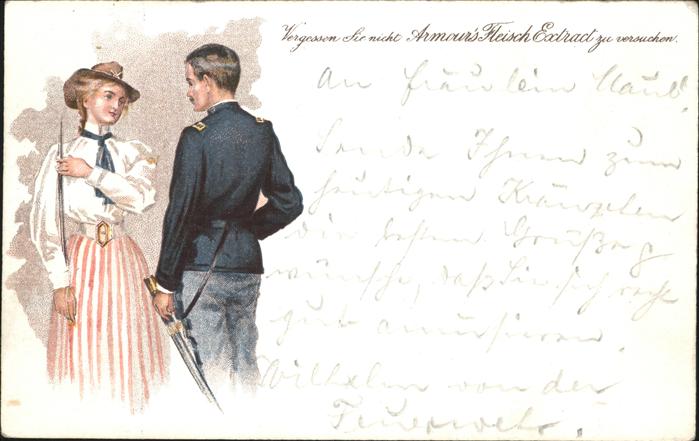 Vergessen Sie nicht Armour's Fleisch Extract zu versuchen.
An Fräulein
Sende Ihnen zum
heutigen Kränzchen
die besten Grüße
wünsche, daß Sie sich recht
gut amusieren.
Wilhelm von der
Feuerwehr.